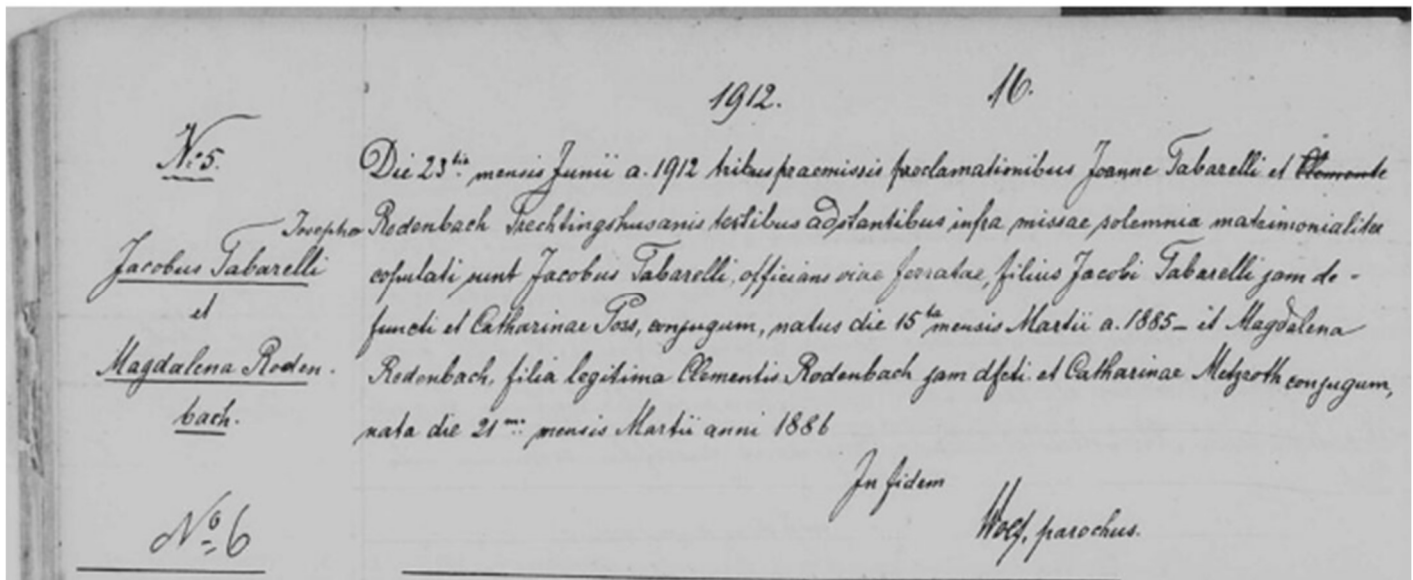 1912.
16.
No 5.
Jacobus Tabarelli
et
Magdalena Roden-
bach.
Die 23tia mensis Junii a. 1912 tribus praemissis proclamationibus Joanne Tabarelli et Clemente
Josepho Rodenbach Trechtingshusanis testibus adstantibus infra missae solemnia matrimonialiter
copulati sunt Jacobus Tabarelli, officians viae ferratae, filius Jacobi Tabarelli jam de-
functi et Catharinae Poss, conjugum, natus die 15ta mensis Martii a. 1885 – et Magdalena
Rodenbach, filia legitima Clementis Rodenbach jam dfcti et Catharinae Metzroth conjugum,
nata die 21ma mensis Martii anni 1886
In fidem
Wolf, parochus.
No 6